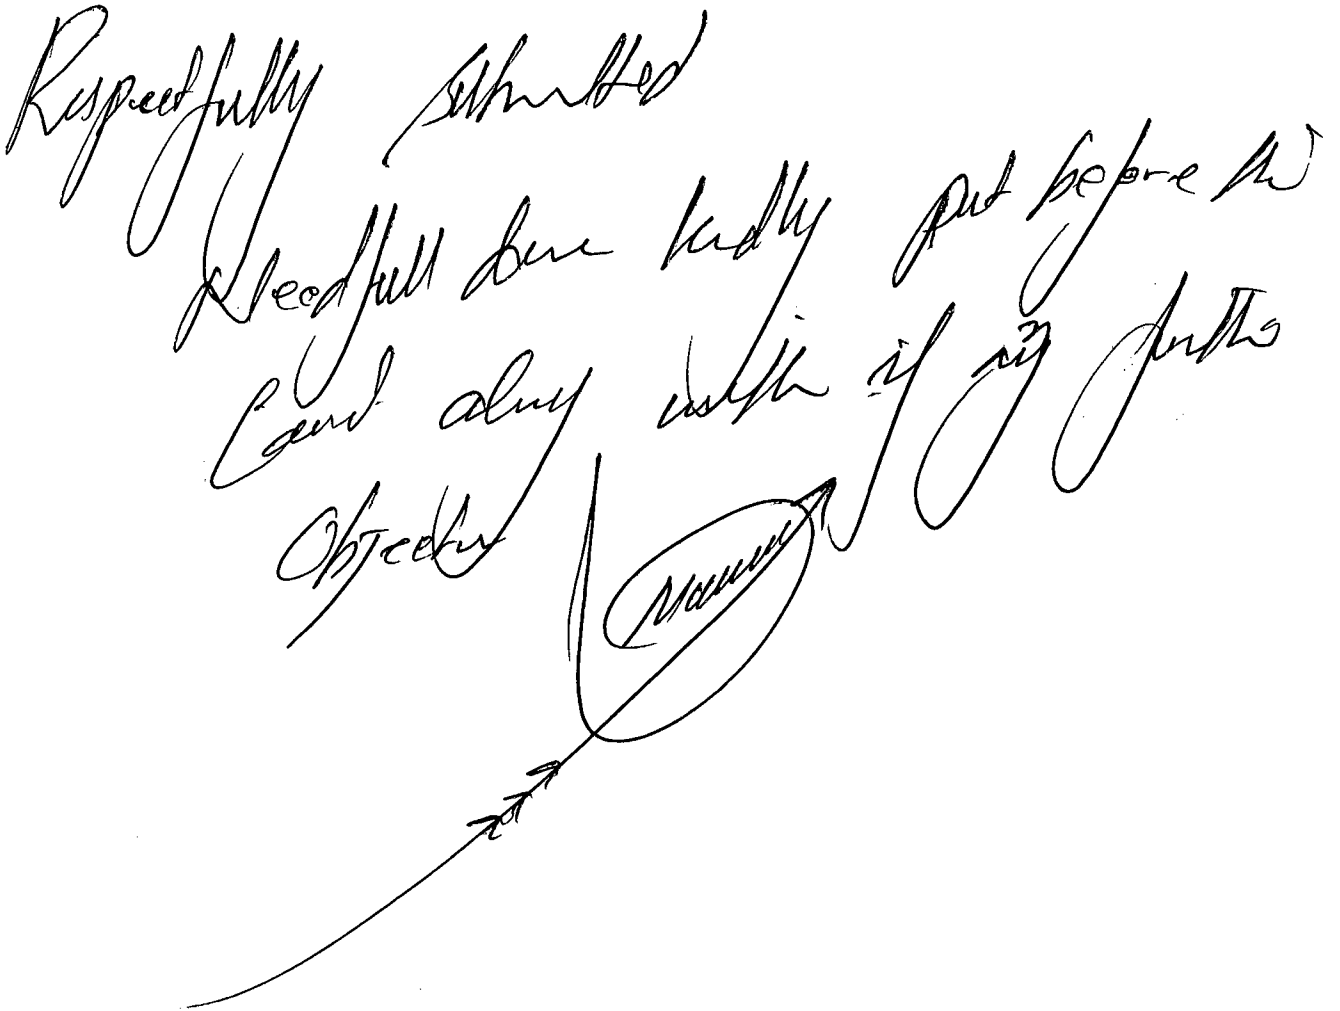 Respectfully submitted
Needfull done kindly put before the
Court along with if any further
Objection